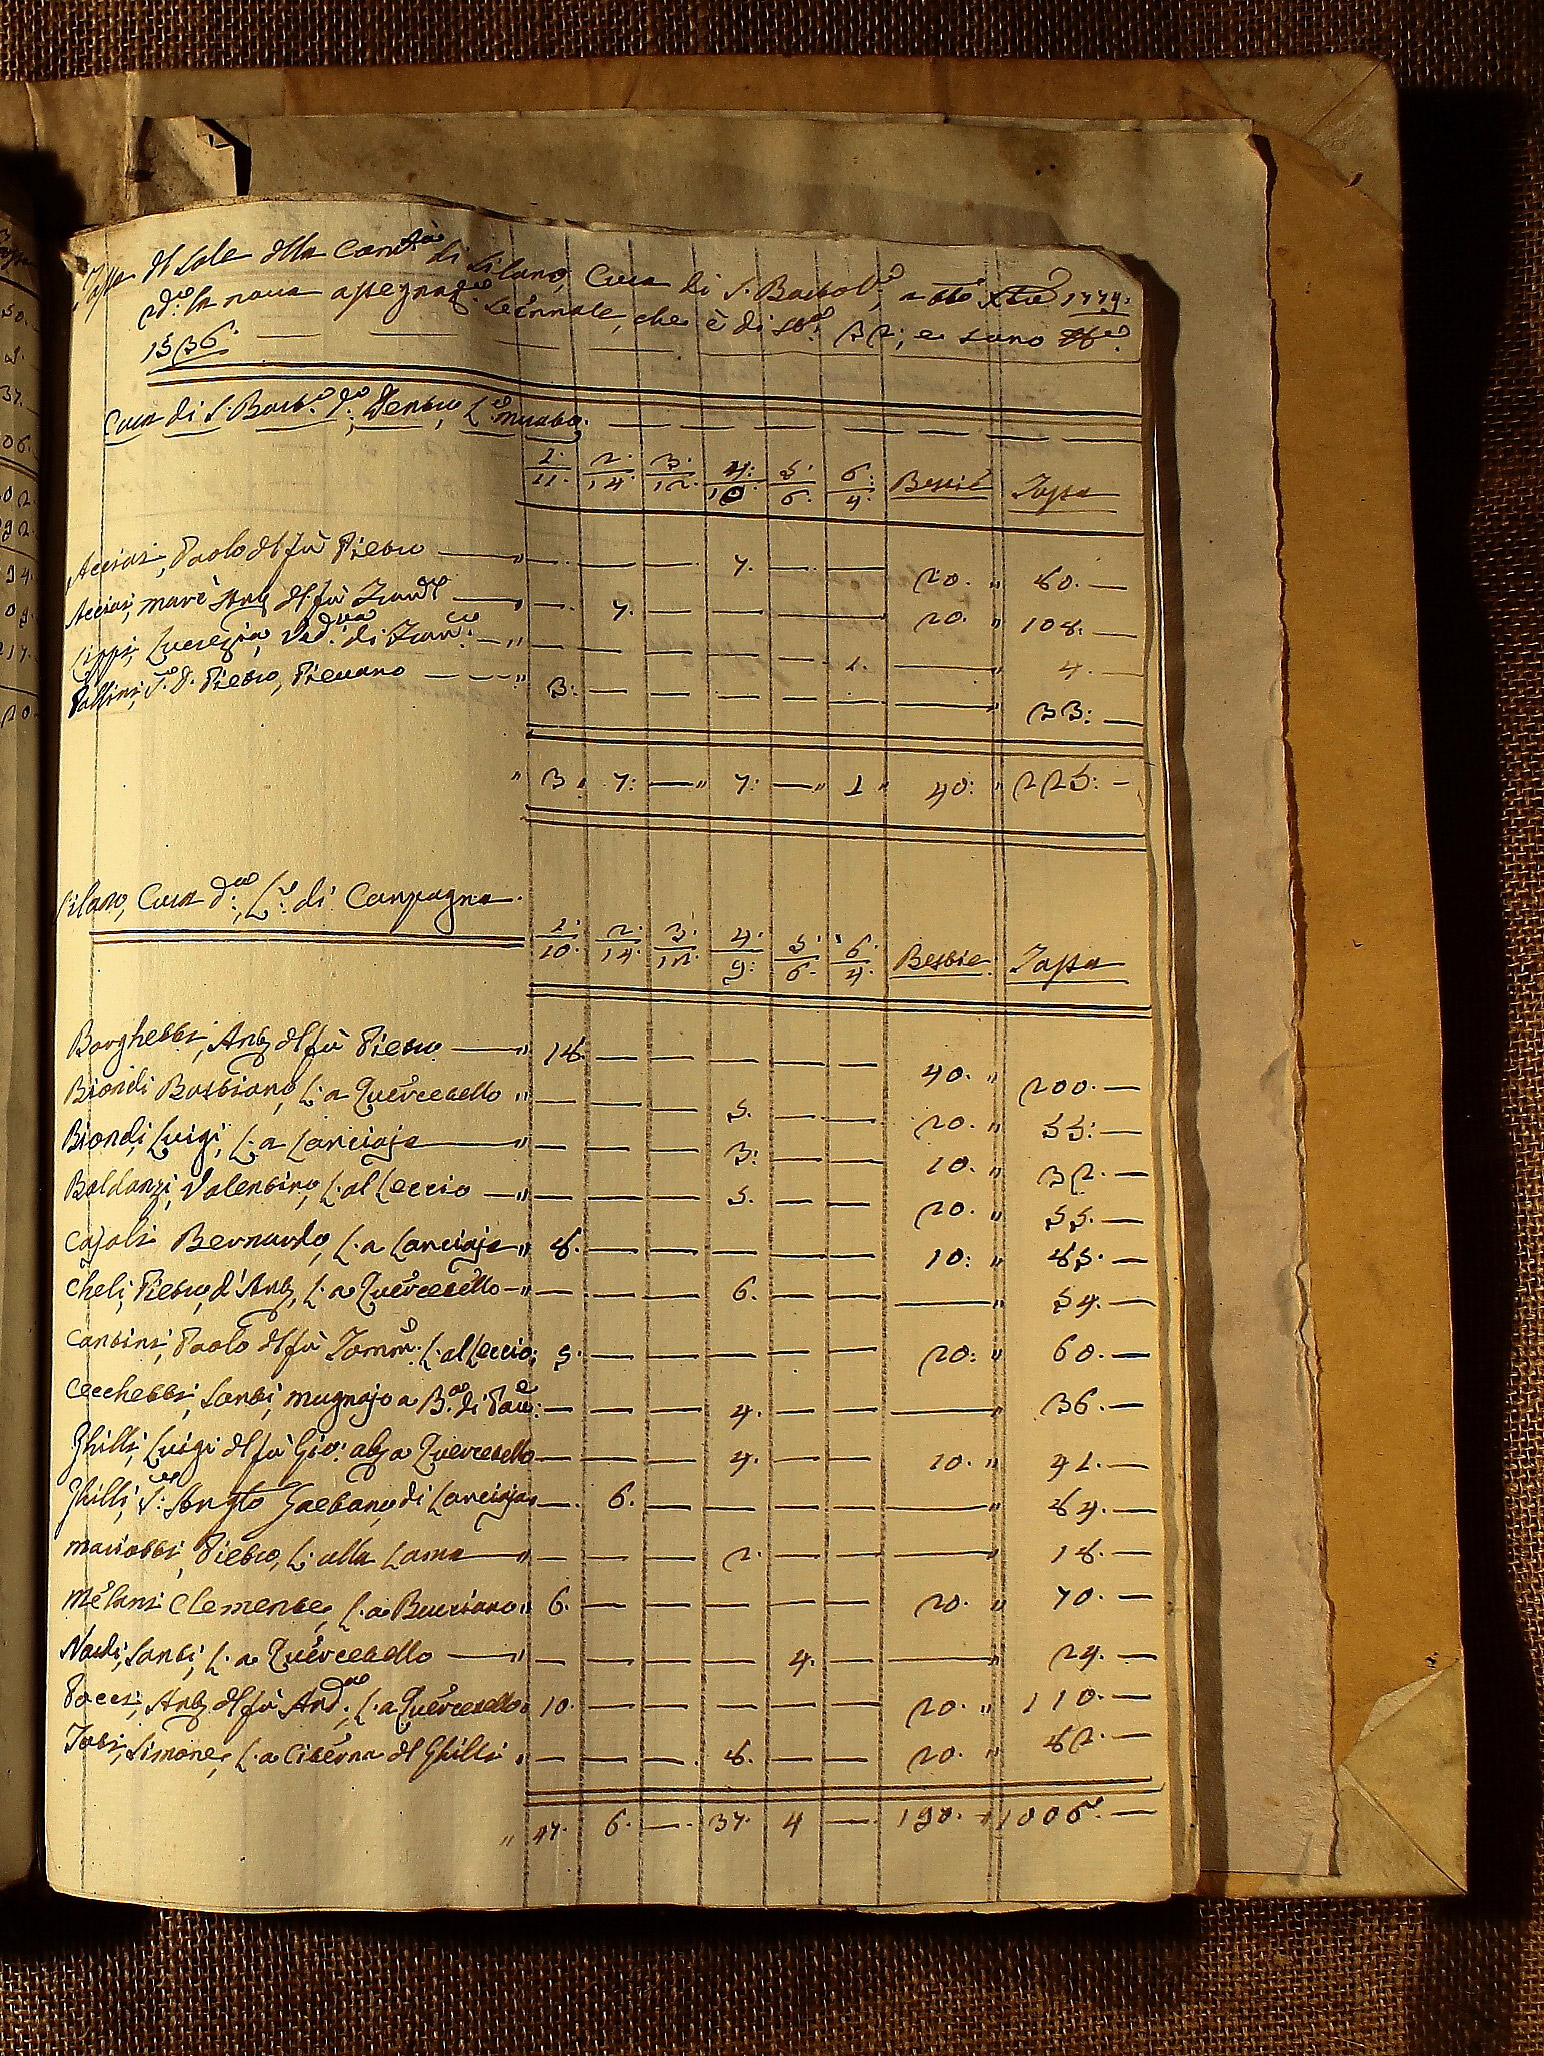 Tassa del Sale della Com.tà di Silano, Cura di S. Bartol.o, a tt.o Xbre 1779:
2.do la nova assegnaz.ne Seennale, che è di St.a 32; e sono
1536.
Cura di S. Bart.o d.o Dentro L.o murato.
1:/11. 2:/14. 3:/12. 4:/10. 5:/6. 6:/4. Bestie Tassa
Acciai, Paolo del fù Pietro — — — 7. — — 20. " 80. —
Acciai, Mar.e Ant.o del fù — 7. — — — — 20. " 108. —
Lippi, Lucrezia, Ved.va di Fran.co — — — — — 1. — " 4. —
Pallini, S.r D. Pietro, Pievano — " 3: — — — — — — " 33: —
" 3 " 7: — " 7: — " 1 " 40: " 225: —
Silano, Cura d.a, L.o di Campagna.
1:/10. 2:/14. 3:/12. 4:/9: 5:/6. 6:/4. Bestie. Tassa
Borghetti, Ant.o del fù Pietro — " 16. — — — — — 40. " 200. —
Biondi Bastiano, L. a Querceteello " — — — 5. — — 20. " 55: —
Biondi, Luigi, L. a Lanciaja — " — — — 3: — — 10. " 32. —
Baldanzi, Valentino, L. al Leccio — " — — — 5. — — 20. " 55. —
Cajoli Bernardo, L. a Lanciaja " 8. — — — — — 10: " 85. —
Cheli, Pietro d'Ant.o, L. a Querceteello — " — — — 6. — — — " 54. —
Cantini, Paolo del fù Tomm.o L. al Leccio; 5. — — — — — 20: " 60. —
Cecchetti, Santi, mugnajo a — — — 4. — — — " 36. —
Ghilli, Luigi del fù Gio: a Querceteello — — — 4. — — 10. " 41. —
Ghilli, S.r Ang.lo Gaetano, di Lanciaja — 6. — — — — — " 84. —
Mariotti, Pietro, L. alla Lama — " — — — 2. — — — " 18. —
Melani Clemente, L. a Bucciano " 6. — — — — — 20. " 70. —
Nardi, Santi, L. a Querceteello — " — — — — 4. — — " 24. —
Pocci, Ant.o del fù And.a, L. a Querceteello " 10. — — — — — 20. " 110. —
Toti, Simone, L. a Citerna del Ghilli " — — — 8. — — 20. " 82. —
" 47. 6. — 37. 4 — 190. " 1006. —